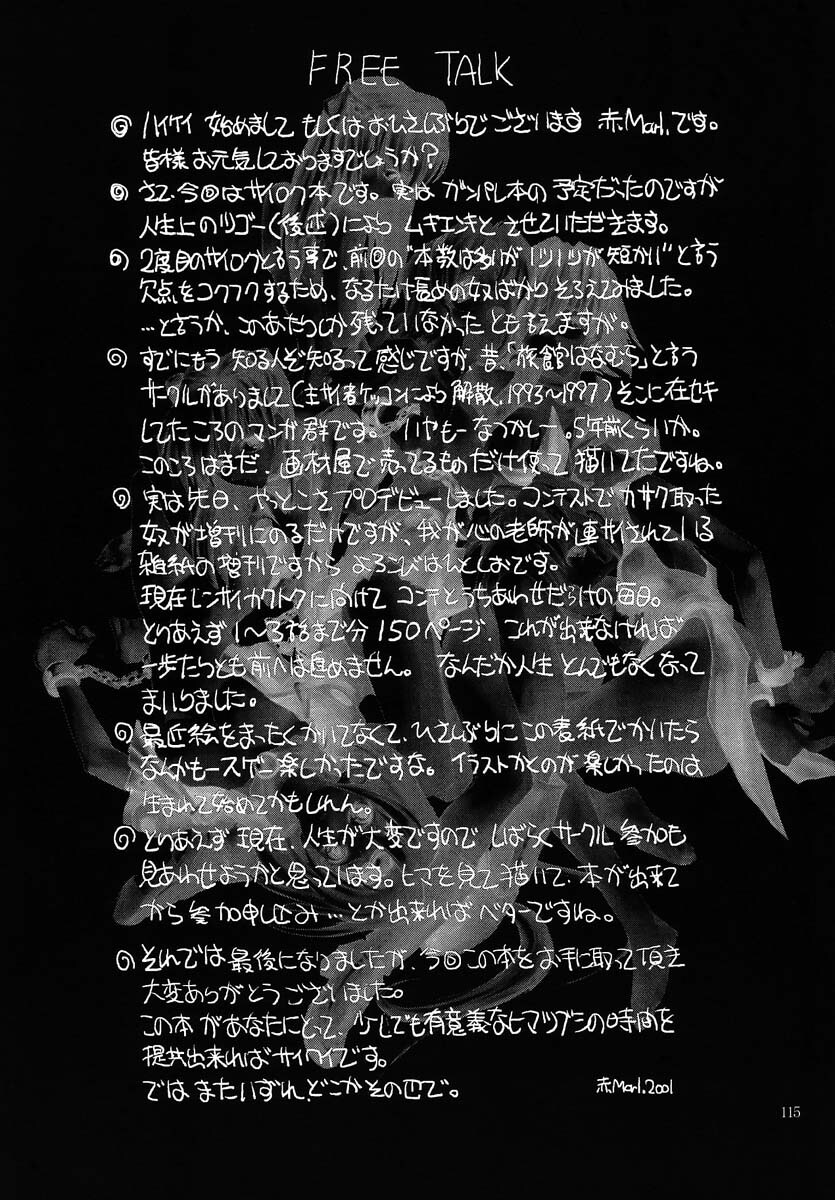 FREE TALK
◎ハイケイ 始めまして もしくはおひさしぶりでございます 赤Marl.です。
皆様 お元気しておりますでしょうか?
◎さて、今回はサイロク本です。実は ガンパレ本の予定だったのですが
人生上のツゴー(後述)により ムキエンキと させていただきます。
◎2度目のサイロクと言う事で、前回の"本数は多いが1ツ1ツが短かい"と言う
欠点をコクフクするため、なるたけ長めの奴ばかり そろえてみました。
…と言うか、このあたりしか 残っていなかった とも言えますが。
◎すでにもう 知る人ぞ知るって感じですが、昔、「旅館はなむら」と言う
サークルがありまして(主サイ者ケッコンにより解散、1993〜1997)そこに在セキ
してたころのマンガ群です。 いやもー なつかしー。5年前くらいか。
このころはまだ、画材屋で売ってるものだけ使って 描いてたですね。
◎実は先日、やっとこさプロデビューしました。コンテストでカサク取った
奴が増刊にのるだけですが、我が心の老師が連サイされている
雑紙の増刊ですから よろこびはんとしおです。
現在レンサイカクトクに向けて コンテとうちあわせだらけの毎日。
とりあえず 1〜3話まで分 150ページ、これが出来なければ
一歩たりとも前へは進めません。 なんだか人生 とんでもなくなって
まいりました。
◎最近絵をまったくかいてなくて、ひさしぶりにこの表紙でかいたら
なんかもースゲー楽しかったですな。イラストかくのが楽しかったのは
生まれて始めてかもしれん。
◎とりあえず 現在、人生が大変ですので しばらくサークル参加も
見あわせようかと思っています。ヒマを見て描いて、本が出来て
から参加申し込み…とか出来ればベターですね。
◎それでは最後になりましたが、今回この本をお手に取って頂き
大変ありがとうございました。
この本があなたにとって、少しでも有意義なヒマツブシの時間を
提共出来ればサイワイです。
では またいずれ、どこかその辺で。
赤Marl.2001
115